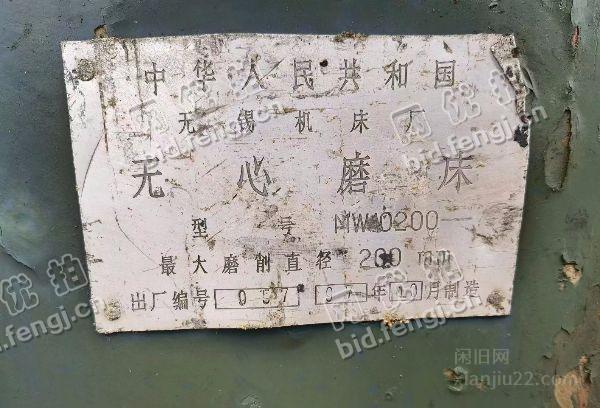 中华人民共和国
无锡机床厂
无心磨床
型号 MW10200
最大磨削直径 200 mm
出厂编号 037 年10月制造
网优拍
bid.fengj.cn
网优拍
bid.fengj.cn
优拍
fengj.cn
网优拍
bid.fengj.cn
闲旧网
xianjiu22.com